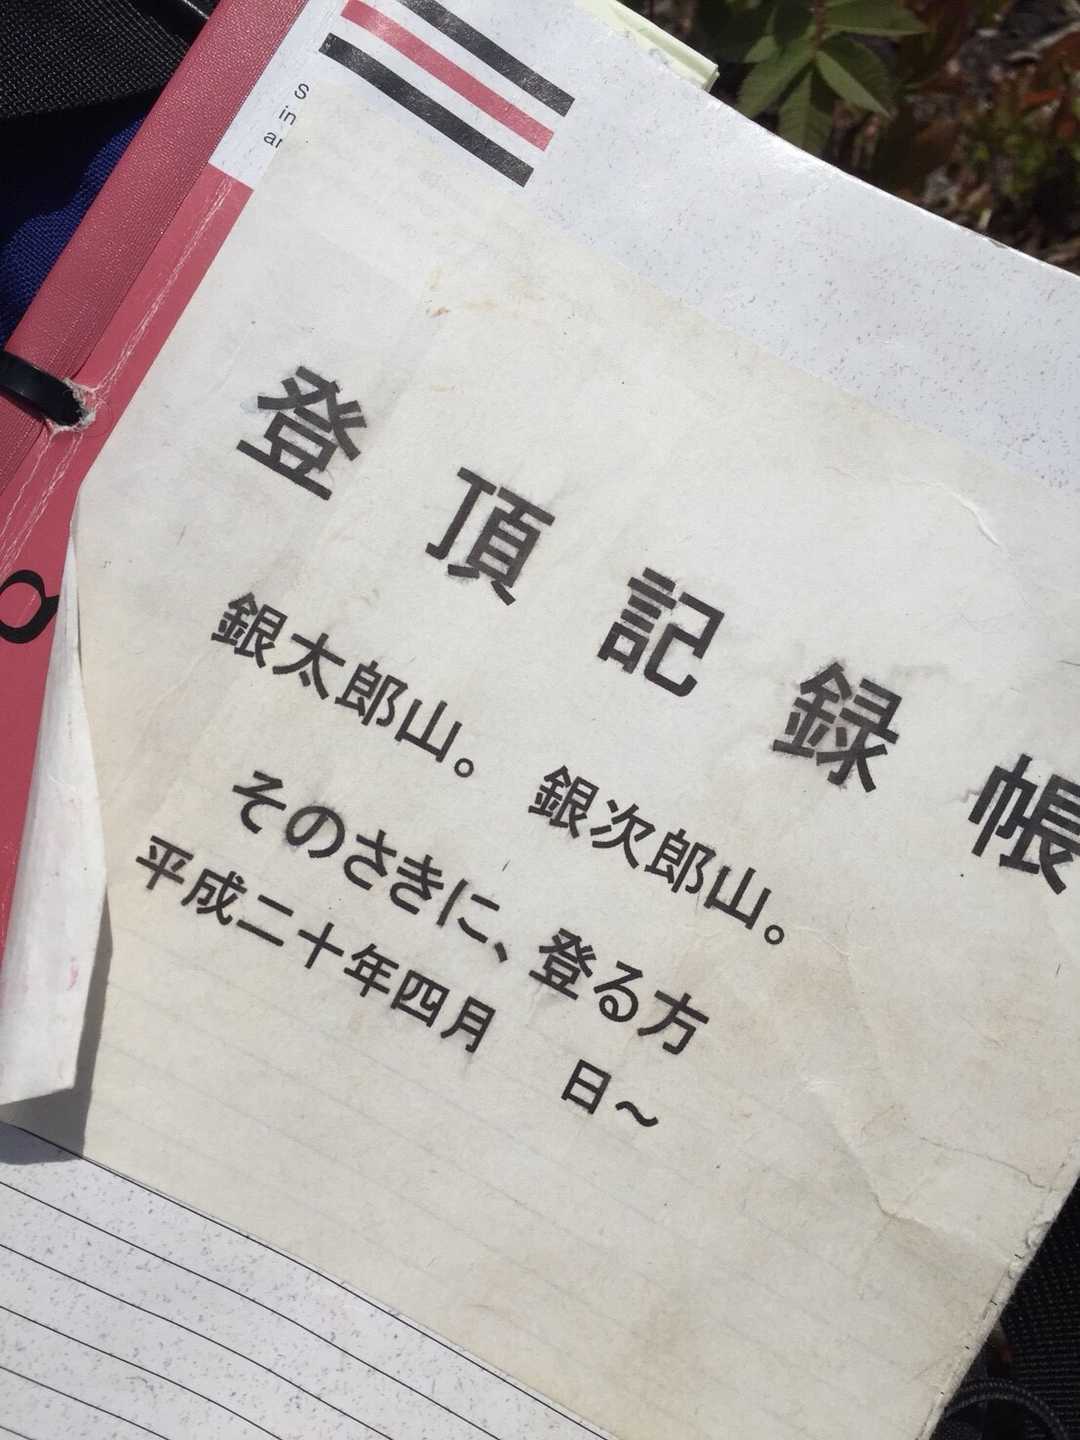 S
in
an
登頂記録帳
銀太郎山。 銀次郎山。
そのさきに、登る方
平成二十年四月 日~